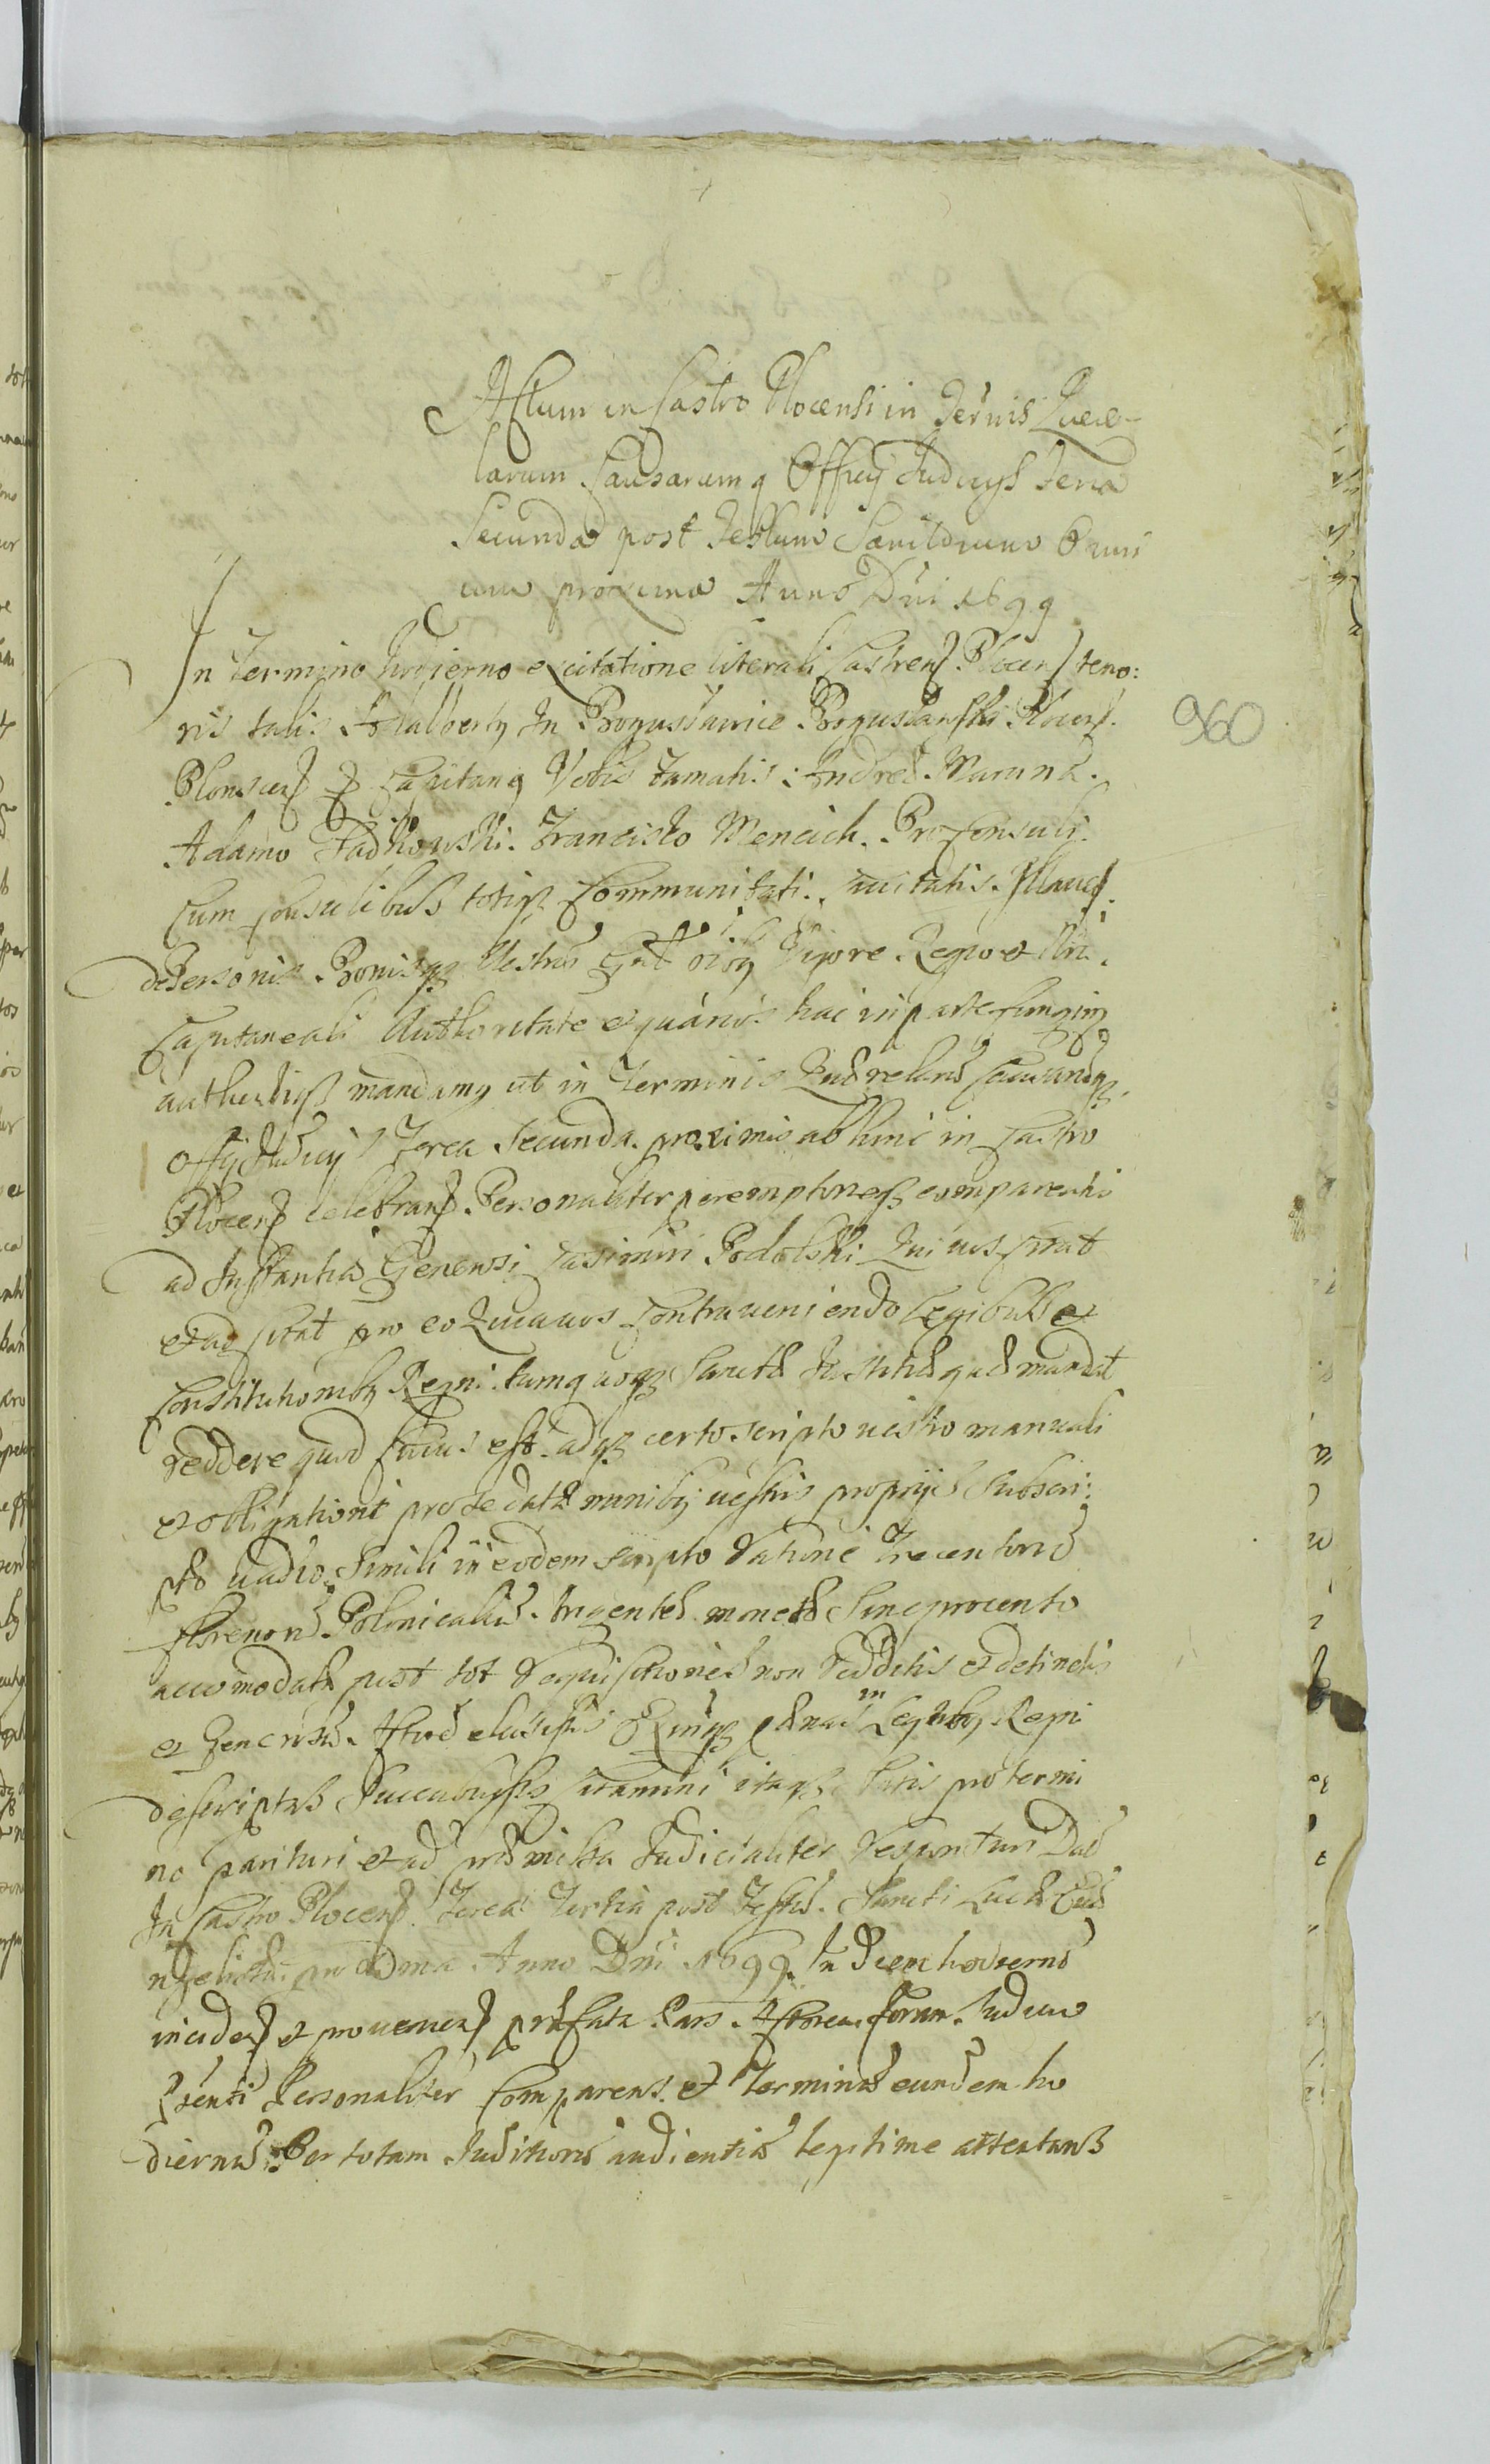 Actum in Castro Plocensi in Ter̃nis Quere-
larum Causarumq Officij Judicys Feria
Secunda post Festum Sanctorum Omni
um proxima Anno Dñi 1699
In Termino hodierno ex citatione literali Castren Plocen teno:
ris talis Adalberty In Bogusławice Bogusławski Plocen.
Plonscen Capitang Vobis Famatis: Andreæ Maruna.
Adamo Fadkowski. Francisko Mencich. Pro Consuli.
cum Consulibus totiq Communitati. civitatis
de Personis Bonisq Vestris Gñl oiby Vigore Regio et Nri.
Capitaneali Authoritate et quanos hac in parte fungim
mandamy ut in Terminis Querelarũ Causarũq
offij Judicij Feria Secunda. proximis ab hinc in Castro
Plocen celebran. Personaliter peremptorieq compareatis
ad Instantiã Generosi Casimiri Podolski Qui vos citat
et ad citat pro eo Quia vos contraveniendo Legibus et
Constitutioniby Regni tumq uoq Sanctæ Justitiæ quæ mandat
reddere quod cuius est adq certo scripto vestro manuali
et obligationi pro se datæ maniby uestris proprijs Subscri:
pto vadio Simili in eodem scripto Ratione Trecentorũ
florenorũ Polonicaliũ. Argenteæ monetæ Sine procento
accomodatæ post tot requisitiones non redditis et detinetis
et Generosũ. Actorẽ elusistis pænas in Legiby Regni
descriptas Succubuistis Citamini itaq Sitis pro termi
no parituri et ad præmissa Judicialiter responsuri Dat
In Castro Plocen. Feria Tertia post Festũ. Sancti Lucæ Eua
ngelistæ. proxima Anno Dñi 1699. In Diem hodiernũ
inciden et provenien præfata Pars Actorea. Coram. Judicio
Præsenti Personaliter comparens. et Terminũ eundem ho
diernũ. Per totam Juditiorũ audientiã legitime attentans
960